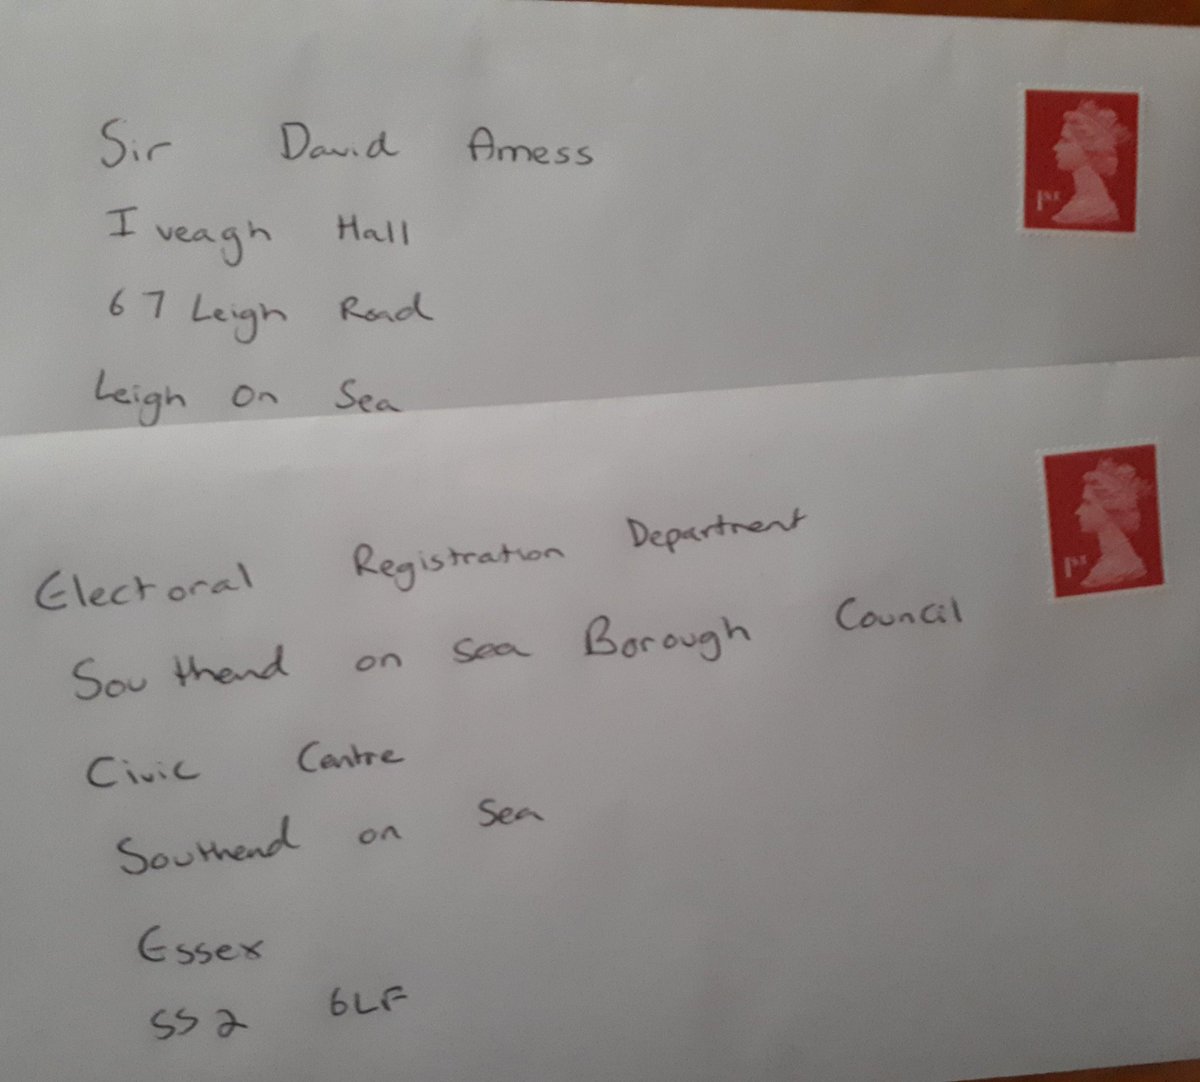 Sir David Amess
1ST
Iveagh Hall
67 Leigh Road
Leigh on Sea
Electoral Registration Department
1ST
Southend on sea Borough Council
Civic Centre
Southend on Sea
Essex
SS2 6LF